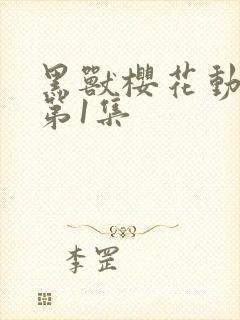 黑獸櫻花動
第1集
李罡